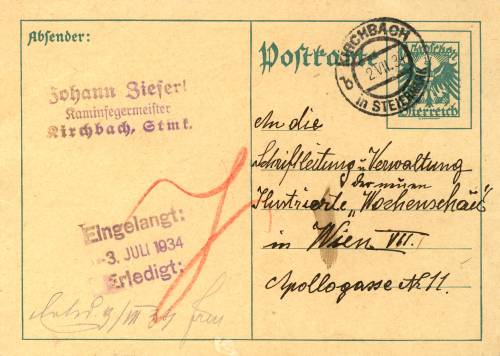 Absender:
Postkarte
KIRCHBACH
2.VII.34
in STEIERMARK
b
Groschen
Österreich
Johann Zieserl
Kaminfegermeister
Kirchbach, Stmk.
An die
Schriftleitung u. Verwaltung
der neuen
Ilustrierte „Wochenschau"
in Wien VII.
Apollogasse № 11.
Eingelangt:
-3. JULI 1934
Erledigt: